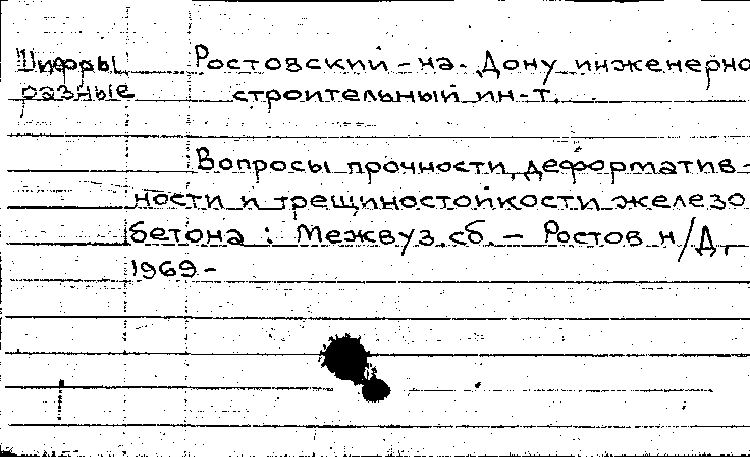 Шифры Ростовский-на-Дону инженерно
разные строительный ин-т.
Вопросы прочности, деформатив-
ности и трещиностойкости железо
бетона : Межвуз. сб. — Ростов н/Д,
1969-